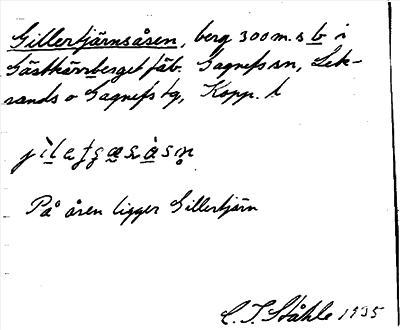 Gillertjärnsåsen, berg 300 m. s b i
Gästkärrberget fäb. Gagnefs sn, Lek-
sands o Gagnefs tg, Kopp. l
På åsen ligger Gillertjärn
C. I. Ståhle 1935